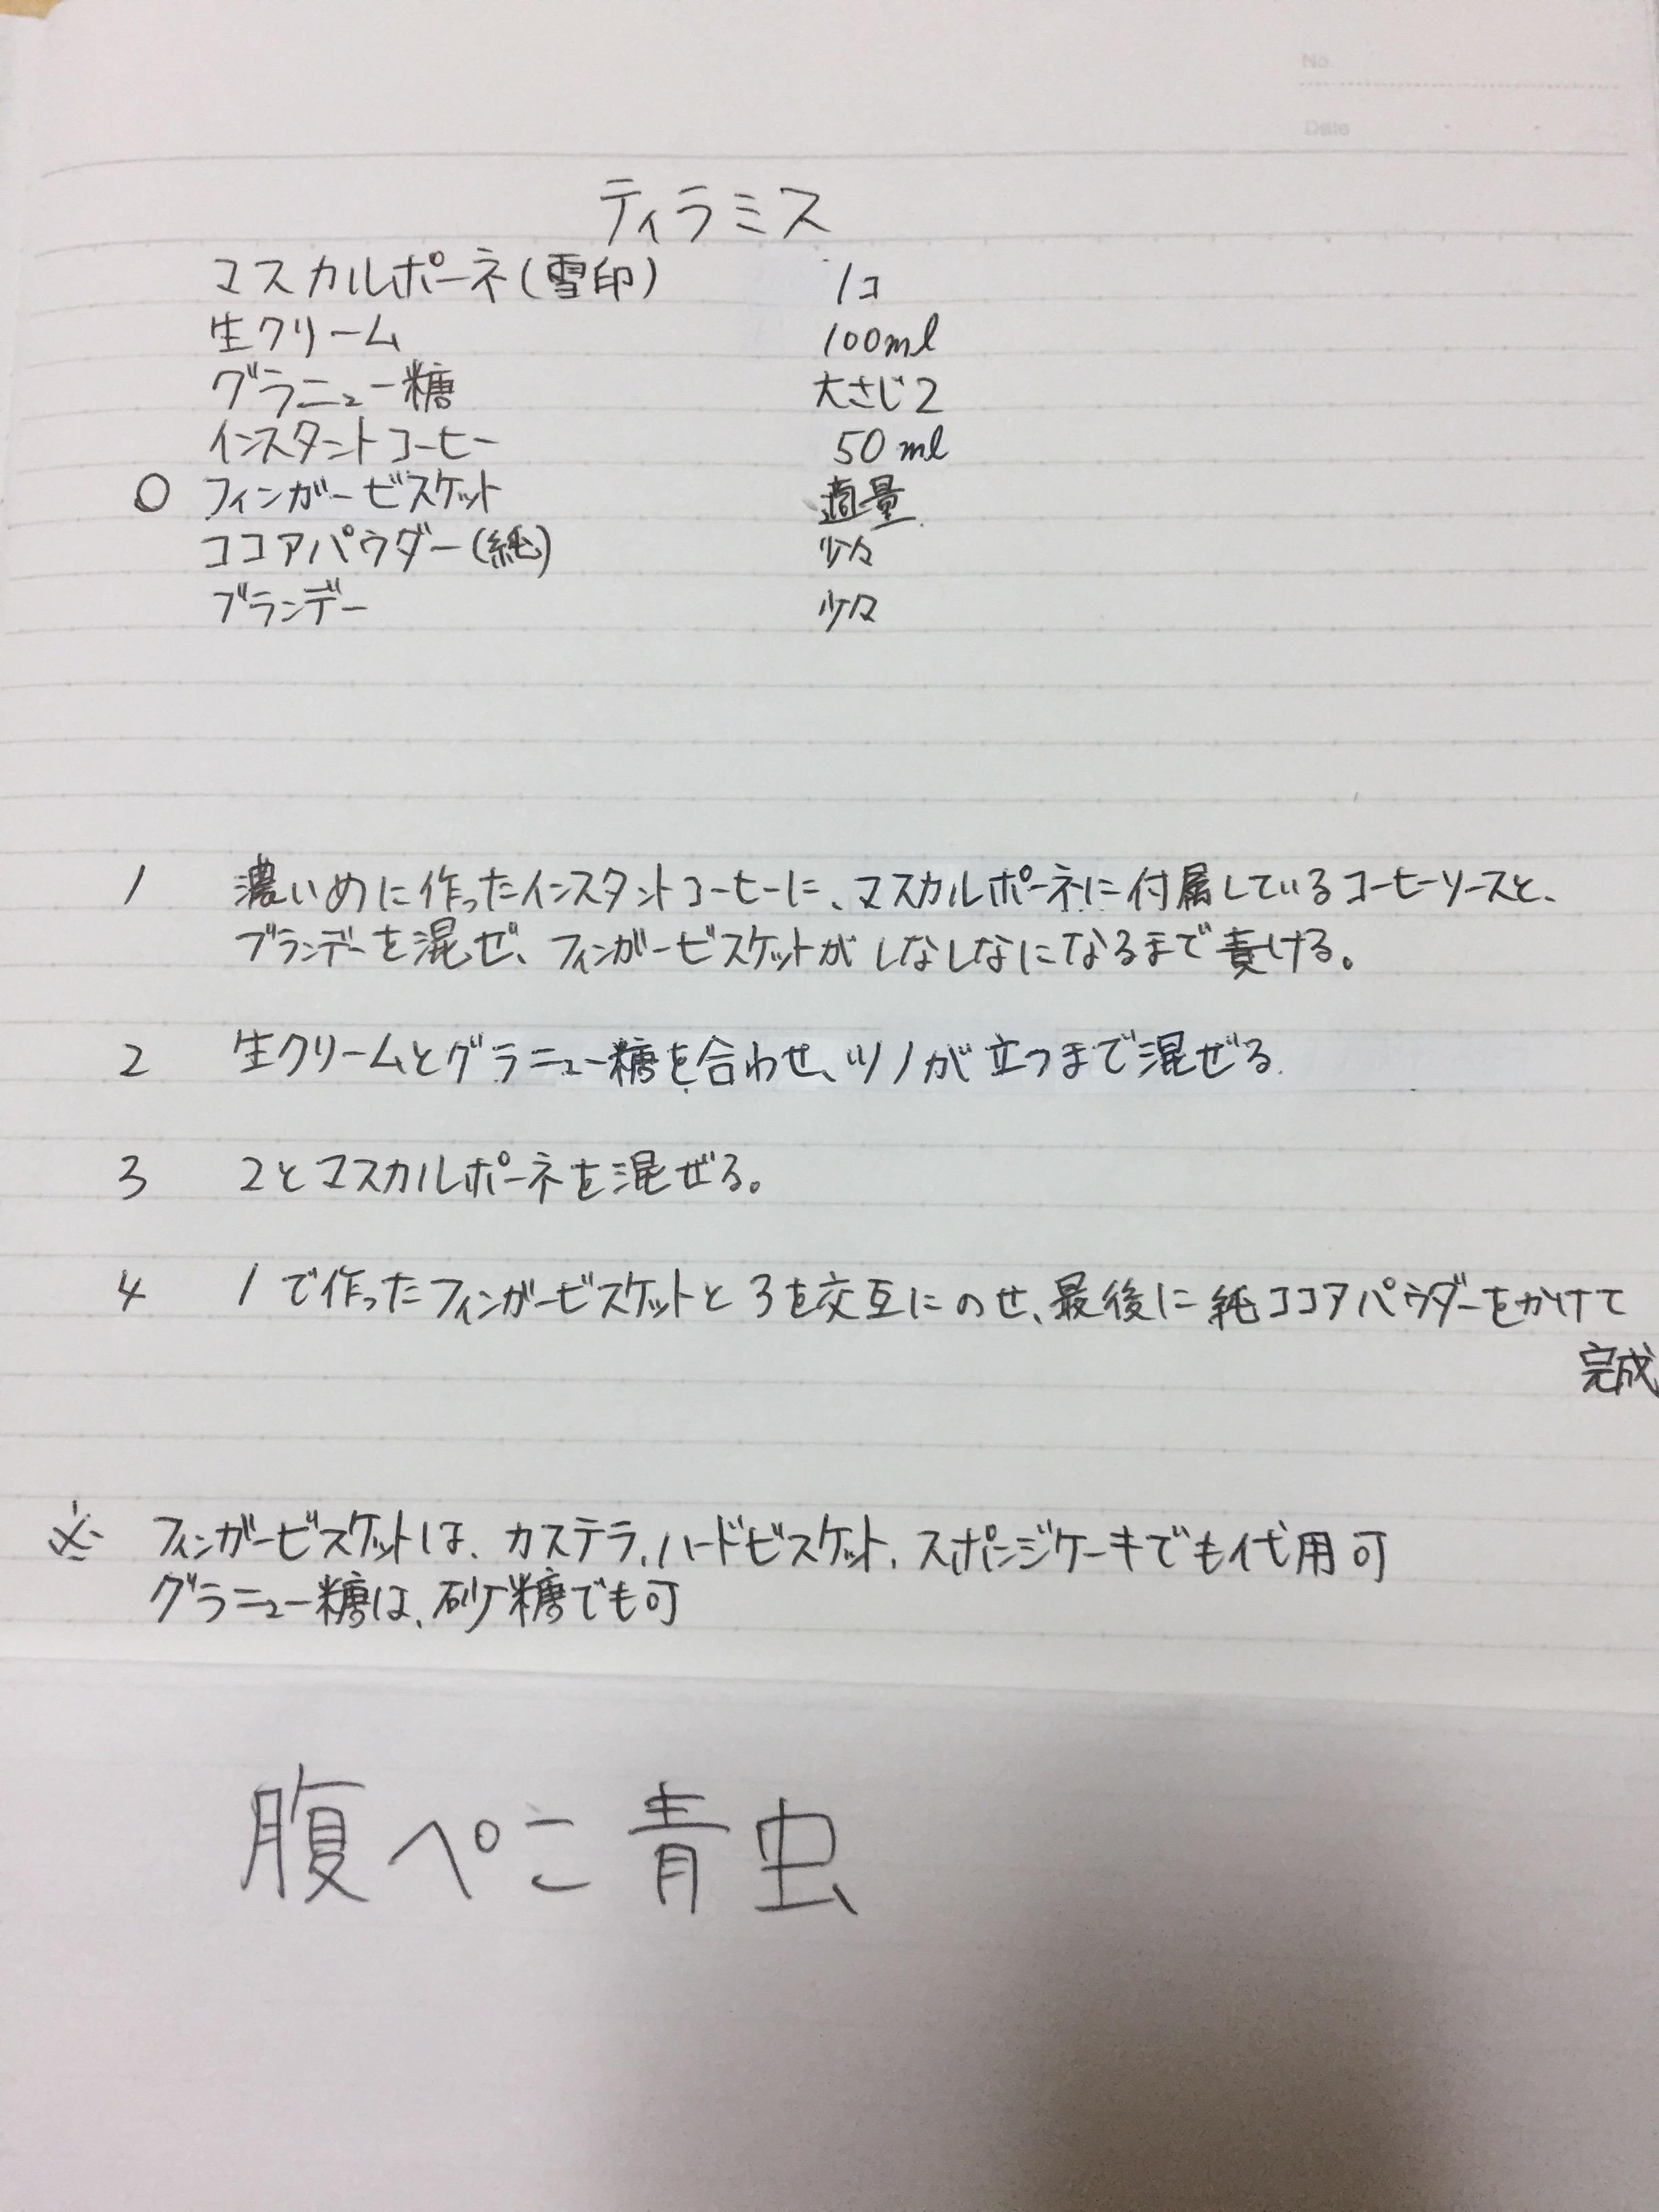 No
Date
ティラミス
マスカルポーネ(雪印) 1コ
生クリーム 100ml
グラニュー糖 大さじ2
インスタントコーヒー 50ml
○ フィンガービスケット 適量
ココアパウダー(純) 少々
ブランデー 少々
1 濃いめに作ったインスタントコーヒーに、マスカルポーネに付属しているコーヒーソースと、
ブランデーを混ぜ、フィンガービスケットがしなしなになるまで責ける。
2 生クリームとグラニュー糖を合わせ、ツノが立つまで混ぜる.
3 2とマスカルポーネを混ぜる。
4 1で作ったフィンガービスケットと3を交互にのせ、最後に純ココアパウダーをかけて
完成
※ フィンガービスケットは、カステラ、ハードビスケット、スポンジケーキでも代用可
グラニュー糖は、砂糖でも可
腹ぺこ青虫